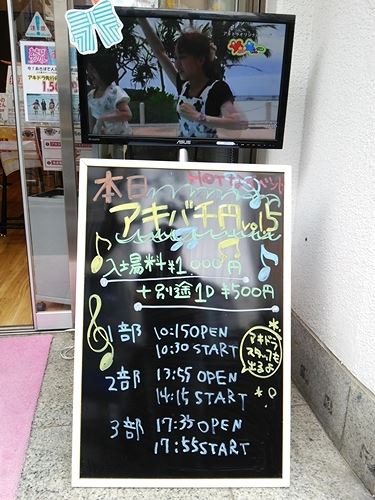 ASUS
本日
HOTなイベント
アキバ千円 vol.15
入場料¥1,000円
+別途1D ¥500円
1部 10:15OPEN
10:30START
2部 13:55 OPEN
14:15 START
3部 17:35 OPEN
17:55START
アキドラ
スタッフも
出るよ